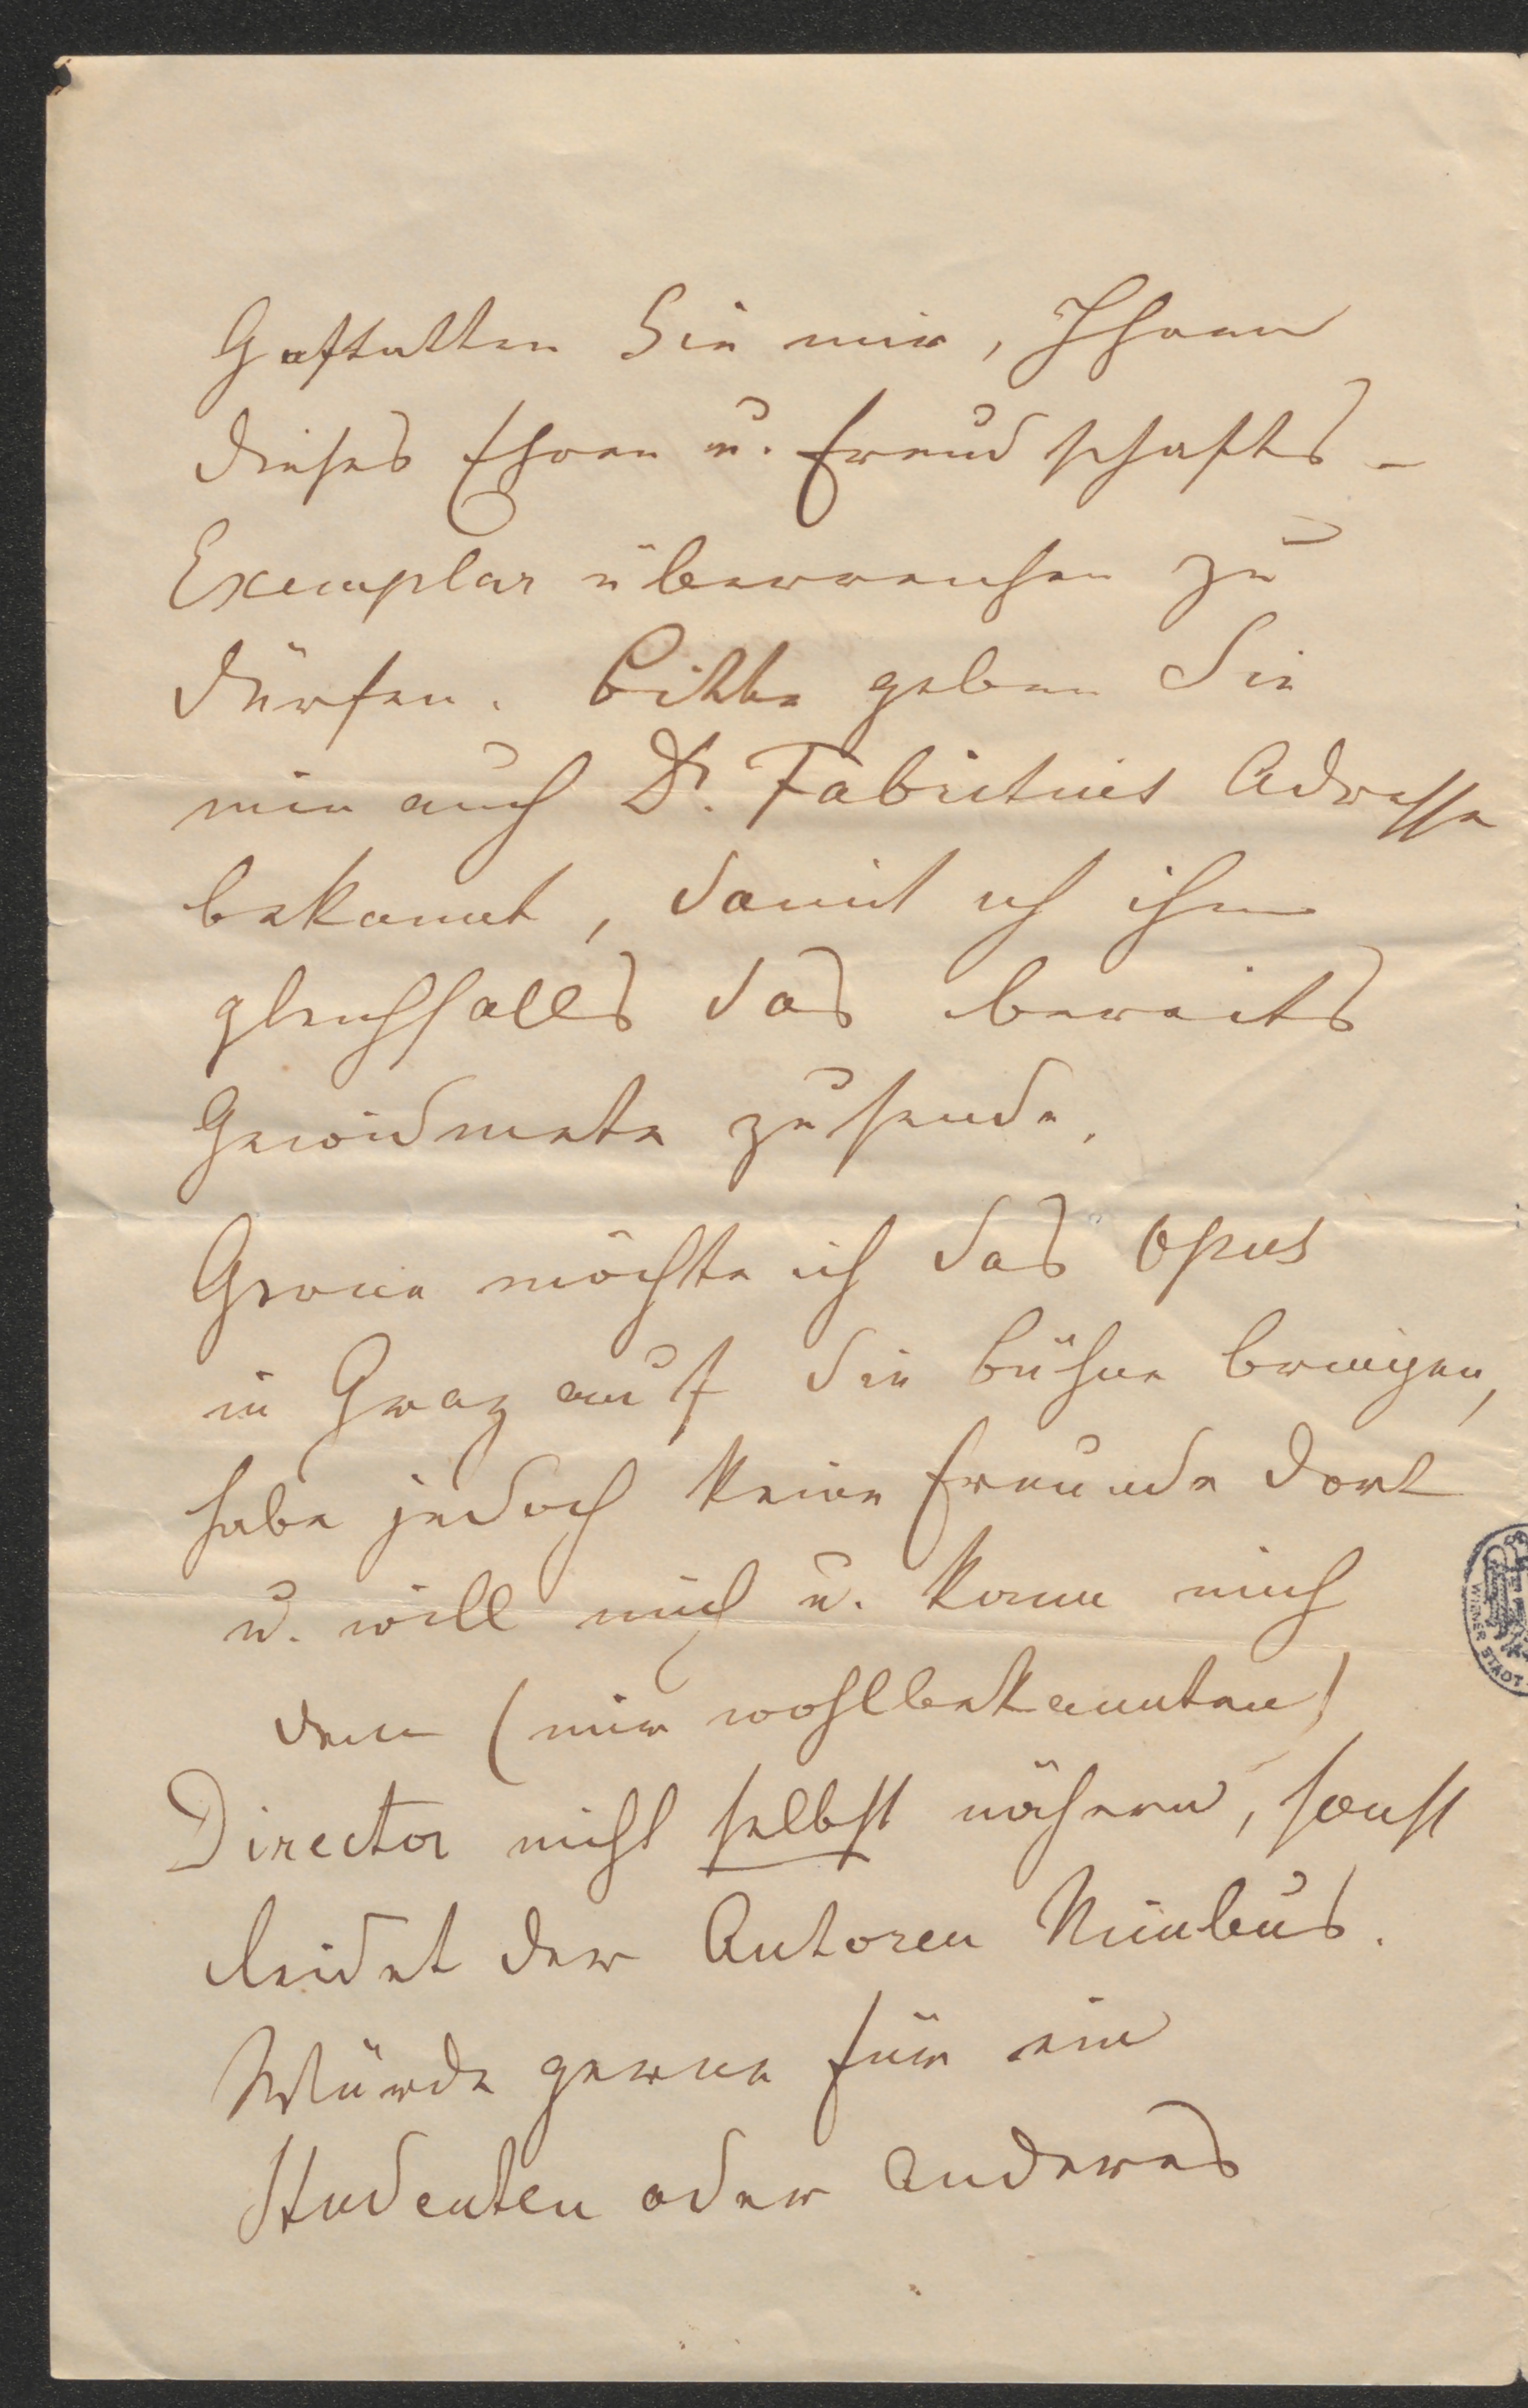 Gestatten Sie mir, Ihnen
dieses Ehren u. Freundschafts-
Exemplar überreichen zu
dürfen. Bitte geben Sie
mir auch Dr. Adresse
bekannt, damit ich ihm
gleichfalls das bereits
Gewidmete zusende.
Gerne möchte ich das Opus
in Graz auf die Bühne bringen,
habe jedoch keine Freunde dort
u. will mich u. kann mich
dem (mir wohlbekannten)
Director nicht selbst nähern, sonst
leidet der Autoren Nimbus.
Würde gerne für ein
Studenten oder anderes
WIENER STADT